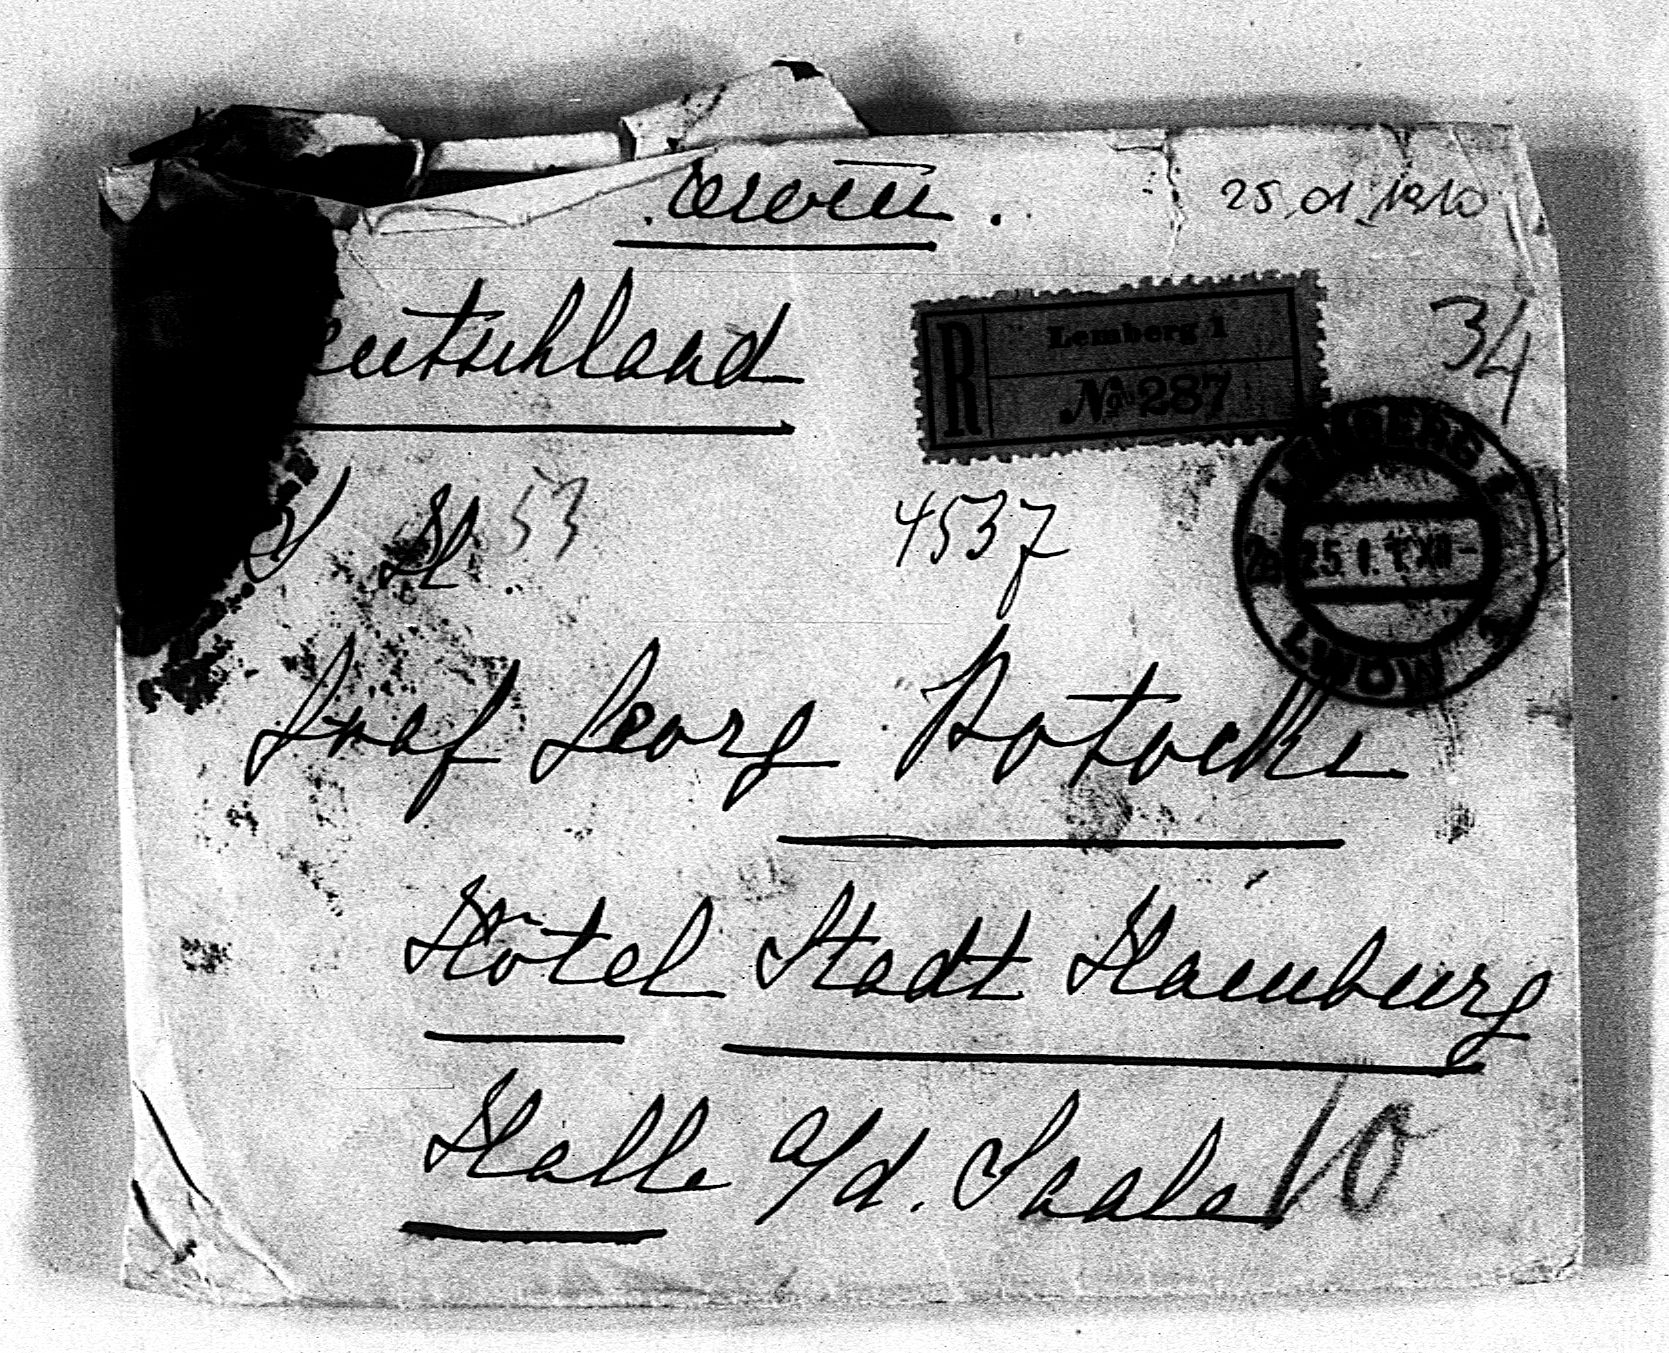 25.01.1910
eutschland
R Lemberg 1
No 287
34
53
4537
LEMBERG 1
25.I.
LWÓW 1
Graf Georg Potocki
Hôtel Stadt Hamburg
Halle a/d. Saale
10